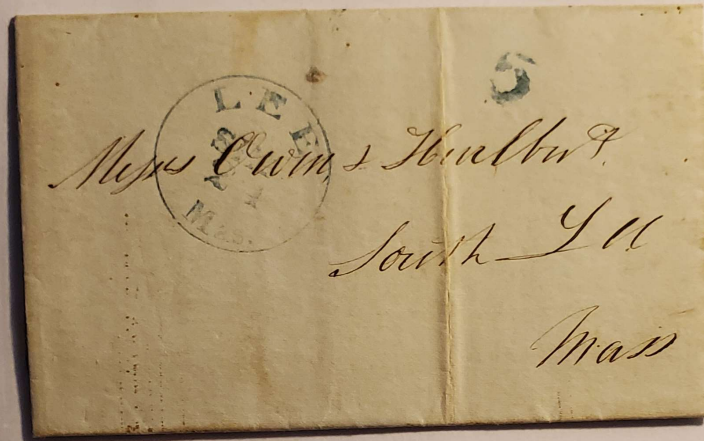 5
LEE
1
Ms.
Messrs Owen & Hurlbut.
South Lee
Mass